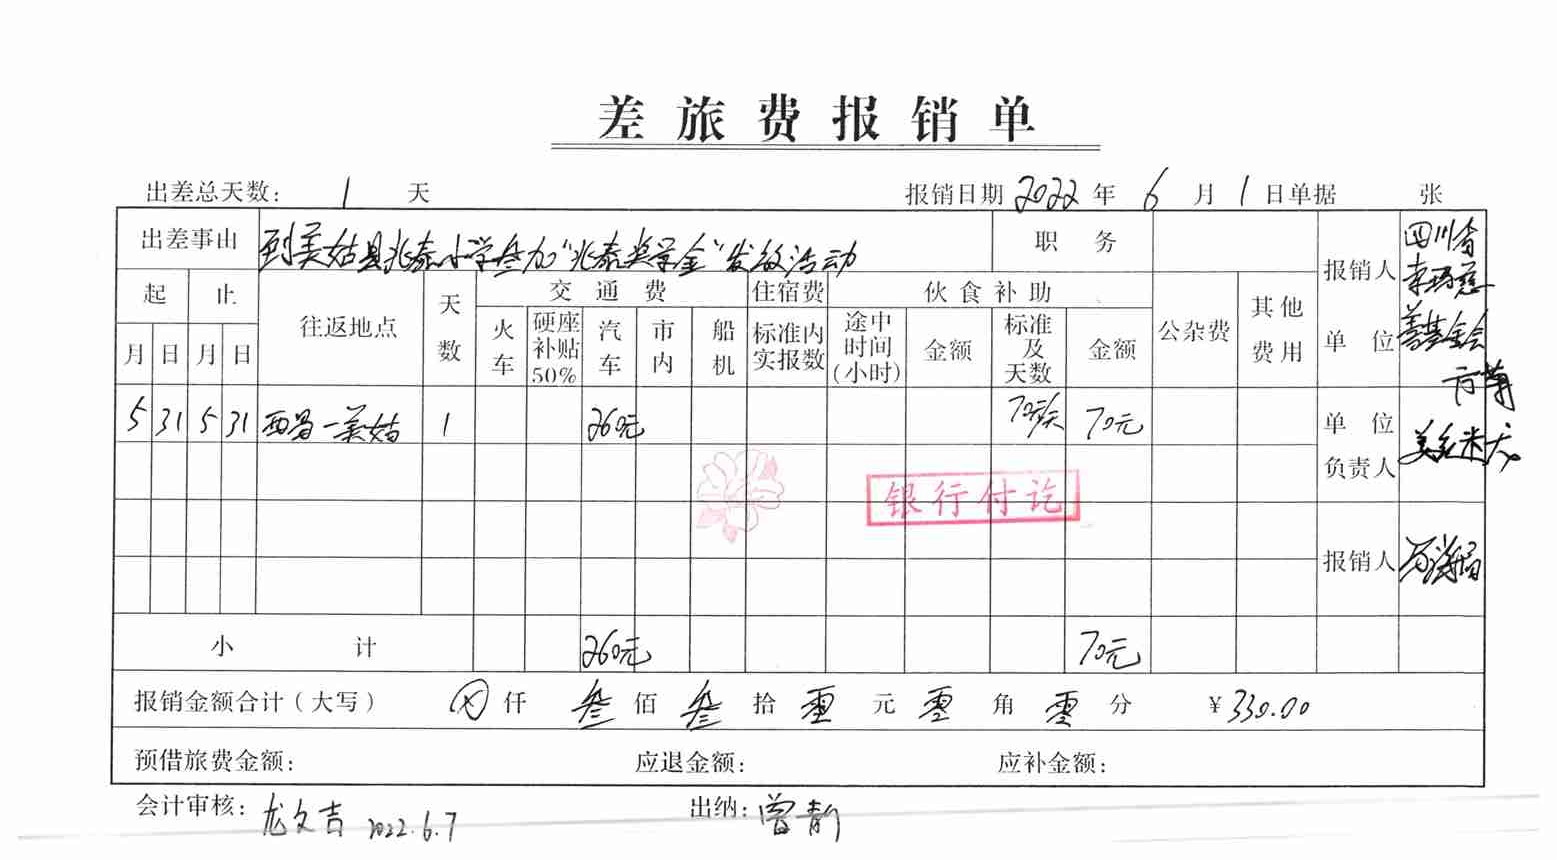 差旅费报销单
出差总天数: 1 天 报销日期 2022 年 6 月 1 日单据 张
出差事由 到美姑县兆泰小学参加“兆泰奖学金”发放活动 职 务
报销人 单 位 四川省 慈善基金会
起 止 往返地点 天数 交 通 费 住宿费 伙 食 补 助 公杂费 其他费用
月 日 月 日 火车 硬座补贴50% 汽车 市内 船机 标准内实报数 途中时间(小时) 金额 标准及天数 金额
5 31 5 31 西昌—美姑 1 260元 70元/天 70元
单 位 负责人
银行付讫
报销人
小 计 260元 70元
报销金额合计(大写) ⊗ 仟 叁 佰 叁 拾 零 元 零 角 零 分 ¥330.00
预借旅费金额: 应退金额: 应补金额:
会计审核: 龙文吉 2022.6.7 出纳: 曾静